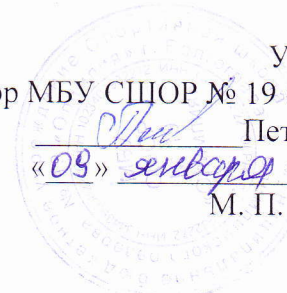 У
ор МБУ СШОР № 19
Пет
«09» января
М. П.